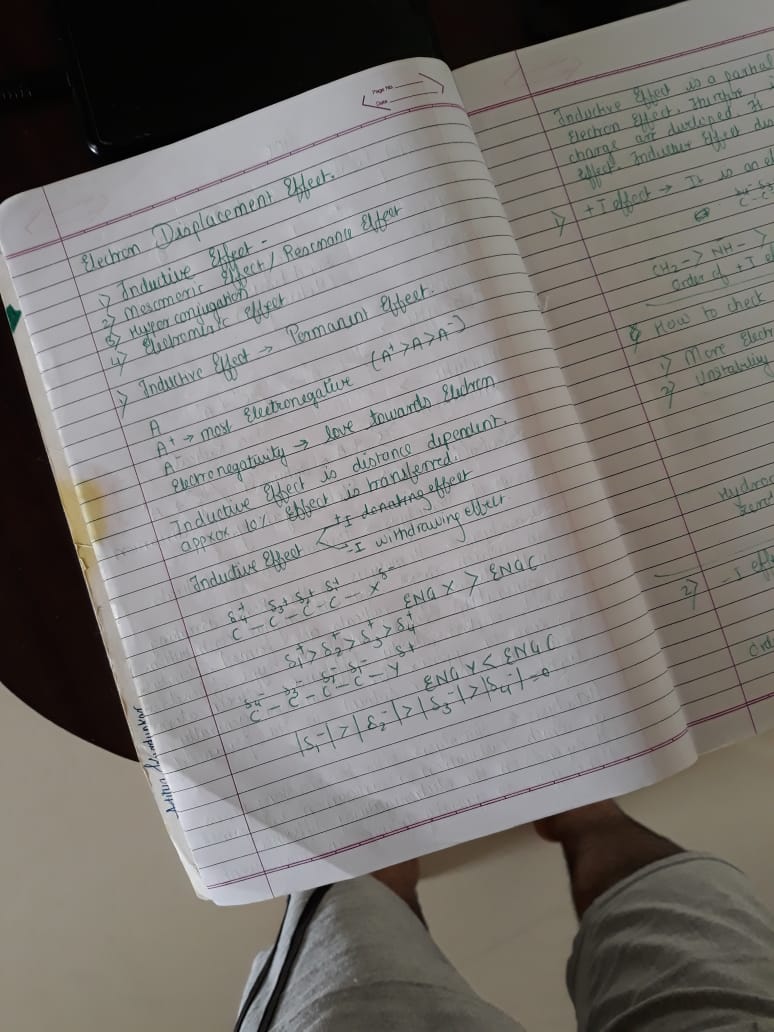 Page No.
Date
Electron Displacement Effect.
1) Inductive Effect -
2) Mesomeric Effect / Resomance Effect
3) Hyperconjugation
4) Electromeric Effect
1) Inductive Effect → Permanent Effect.
A
A+ → most Electronegative (A+ > A > A-)
A-
Electronegativity → love towards Electron
Inductive Effect is distance dependent.
approx. 10% Effect is transferred.
Inductive Effect < +I donating effect
-I withdrawing effect
δ4+ δ3+ δ2+ δ+
C - C - C - C - X δ-
ENG X > ENG C
δ1+ > δ2+ > δ3+ > δ4+
δ4- δ3- δ2- δ1- δ+
C - C - C - C - Y
ENG Y < ENG C
|δ1-| > |δ2-| > |δ3-| > |δ4-| = 0
Inductive Effect is a partial
Electron Effect. Therefore
charge are developed. It
Effect. Inductive Effect dis
1) +I effect → It is an el
C - C
CH2- > NH- >
Order of +I ef
How to check
1) More Elect
2) Unstability
Hydro
2) -I effe
Ord